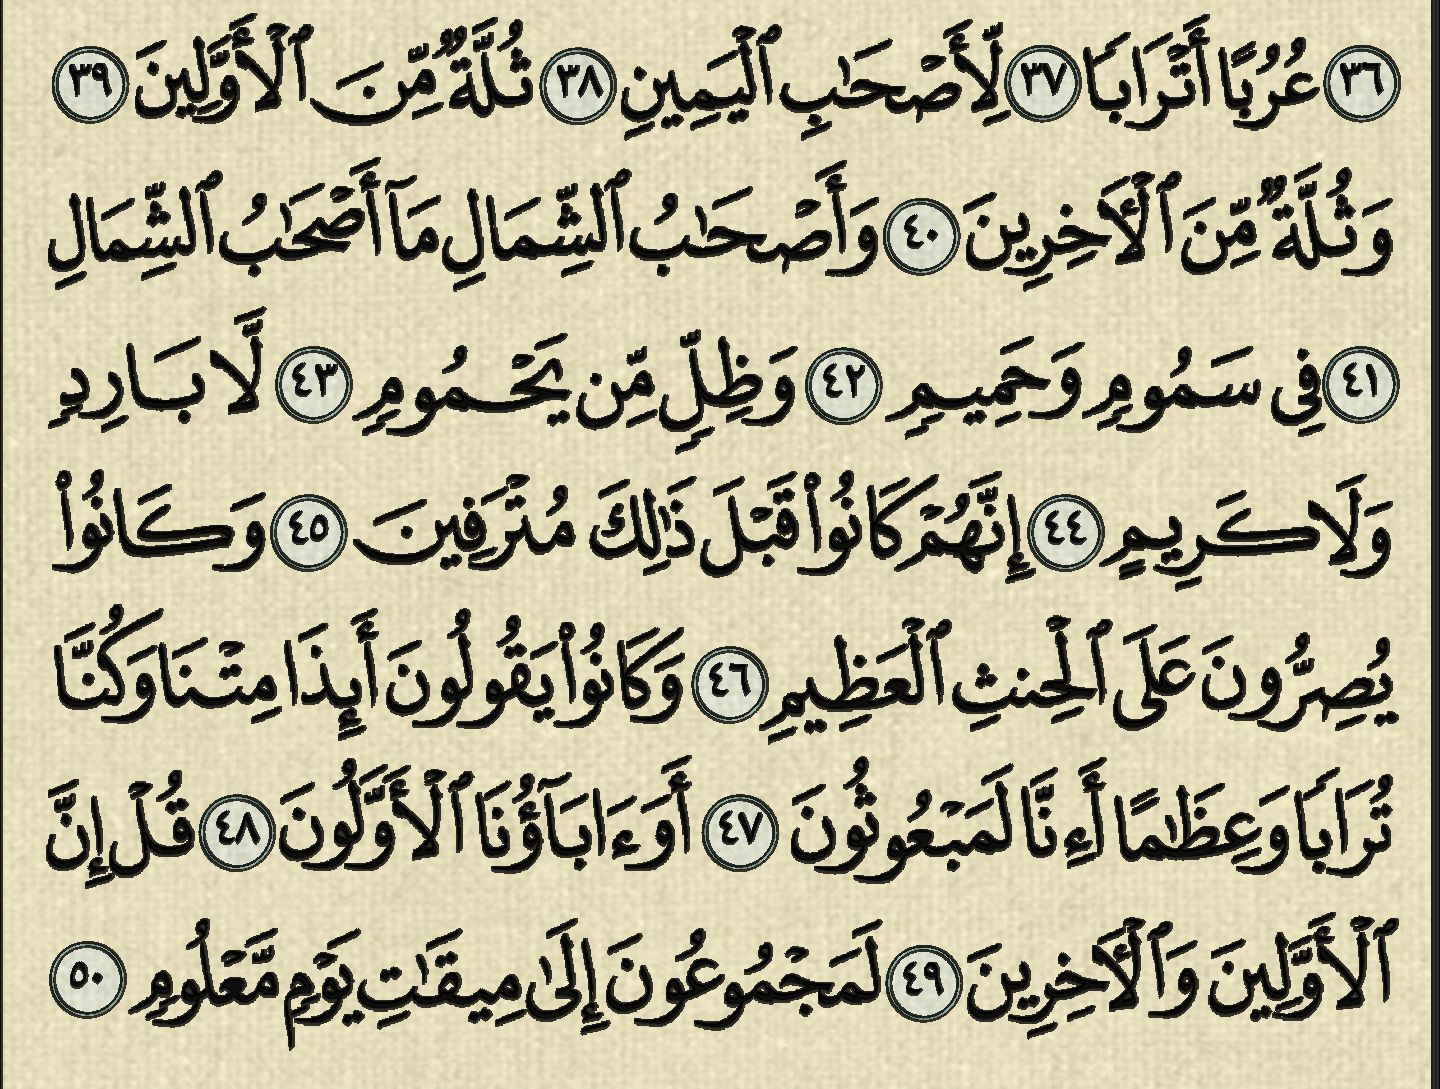 ٣٦ عُرُبًا أَتْرَابًا ٣٧ لِّأَصْحَٰبِ ٱلْيَمِينِ ٣٨ ثُلَّةٌ مِّنَ ٱلْأَوَّلِينَ ٣٩
وَثُلَّةٌ مِّنَ ٱلْآخِرِينَ ٤٠ وَأَصْحَٰبُ ٱلشِّمَالِ مَآ أَصْحَٰبُ ٱلشِّمَالِ
٤١ فِى سَمُومٍ وَحَمِيمٍ ٤٢ وَظِلٍّ مِّن يَحْمُومٍ ٤٣ لَّا بَارِدٍ
وَلَا كَرِيمٍ ٤٤ إِنَّهُمْ كَانُوا۟ قَبْلَ ذَٰلِكَ مُتْرَفِينَ ٤٥ وَكَانُوا۟
يُصِرُّونَ عَلَى ٱلْحِنثِ ٱلْعَظِيمِ ٤٦ وَكَانُوا۟ يَقُولُونَ أَئِذَا مِتْنَا وَكُنَّا
تُرَابًا وَعِظَٰمًا أَءِنَّا لَمَبْعُوثُونَ ٤٧ أَوَءَابَآؤُنَا ٱلْأَوَّلُونَ ٤٨ قُلْ إِنَّ
ٱلْأَوَّلِينَ وَٱلْآخِرِينَ ٤٩ لَمَجْمُوعُونَ إِلَىٰ مِيقَٰتِ يَوْمٍ مَّعْلُومٍ ٥٠